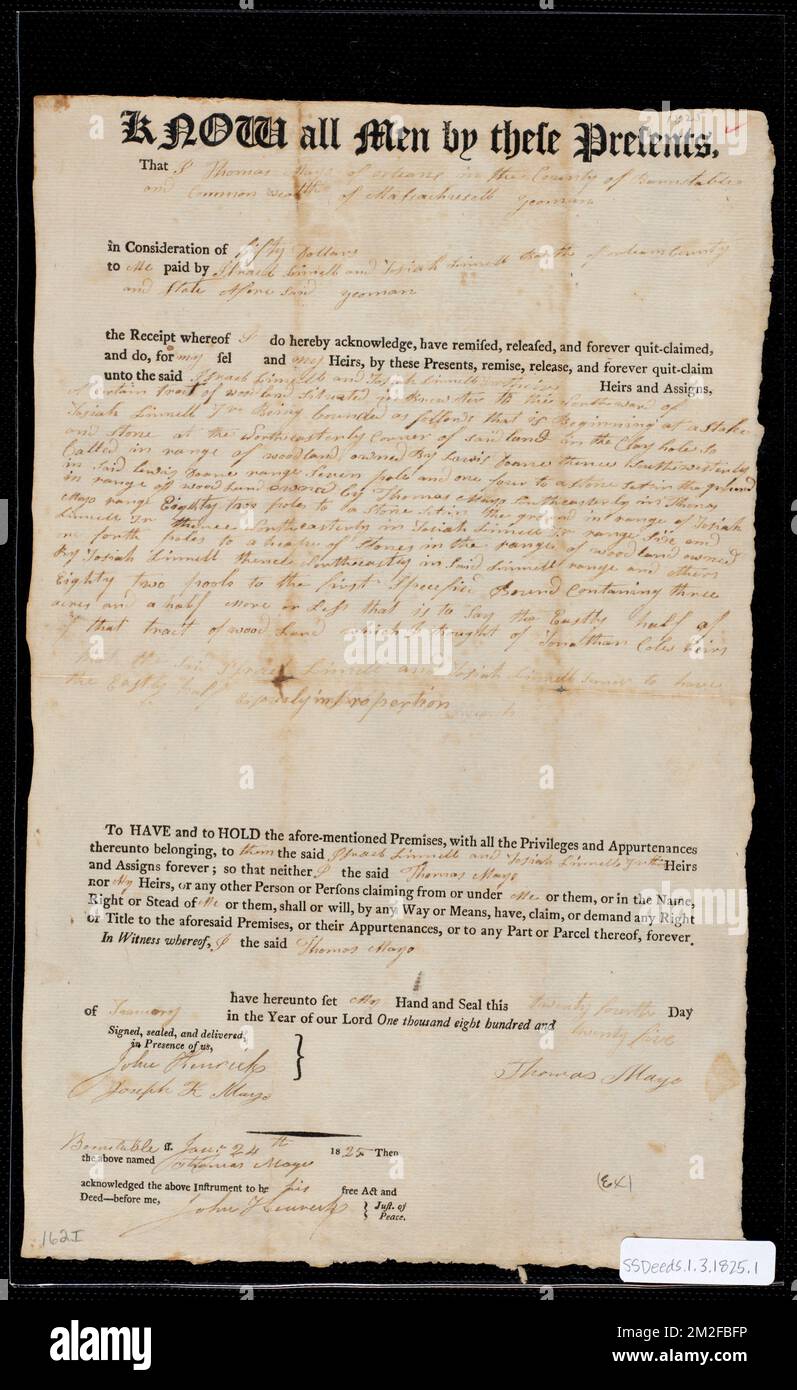 1825
KNOW all Men by theſe Preſents,
That I Thomas Mayo of orleans in the County of Barnstable
and Common wealth of Massachusetts yeoman
in Consideration of fifty Dollars
to Me paid by Israel Linnell and Josiah Linnell Jr both of orleans County
and State afore Said yeoman
the Receipt whereof I do hereby acknowledge, have remiſed, releaſed, and forever quit-claimed,
and do, for my ſel and my Heirs, by theſe Preſents, remise, release, and forever quit-claim
unto the said Israel Linnell and Josiah Linnell Heirs and Assigns,
A Certain tract of wood land Situated in Brewster to the Southward of
Josiah Linnell Jr Being bounded as follends that is Beginning at a Stake
and Stone at the Northeasterly Corner of said land in the Clay holes So
Called in range of woodland owned By Lewis Doane thence Southwesterly
in Said Lewis Doane range Seven pole and one four to a Stone Set in the ground
in range of wood land owned by Thomas Mayo Southeasterly in Thomas
Mayo range Eighty two poles to a Stone Set in the ground in range of Josiah
Linnell Jr thence Northeasterly in Josiah Linnell Jr range Six and
one forth poles to a heape of Stones in the range of wood land owned
By Josiah Linnell thence Northwestly in Said Linnell range and others
Eighty two pools to the first Specified Bound Containing three
acres and a half more or Less that is to Say the Eastly half of
of that tract of wood Land which I bought of Jonathan Coles heirs
the Said Israel Linnell and Josiah Linnell to have
the Eastly half in propertion
To HAVE and to HOLD the afore-mentioned Premises, with all the Privileges and Appurtenances
thereunto belonging, to them the said Israel Linnell and Josiah Linnell Jr their Heirs
and Assigns forever; so that neither I the said Thomas Mayo
nor My Heirs, or any other Person or Perſons claiming from or under Me or them, or in the Name,
Right or Stead of Me or them, shall or will, by any Way or Means, have, claim, or demand any Right
or Title to the aforesaid Premises, or their Appurtenances, or to any Part or Parcel thereof, forever.
In Witness whereof, I the said Thomas Mayo
have hereunto ſet My Hand and Seal this twenty fourth Day
of January in the Year of our Lord One thousand eight hundred and twenty five
Signed, sealed, and delivered,
in Presence of us,
John Kenrick
Joseph K Mayo
Thomas Mayo
Barnstable ſſ. Janr 24th 1825 Then
the above named Thomas Mayo
acknowledged the above Inſtrument to be his free Act and
Deed—before me, John Kenrick Juſt. of
Peace.
(Ex)
162I
SSDeeds.1.3.1825.1
alamy
Image ID: 2M2FBFP
www.alamy.com